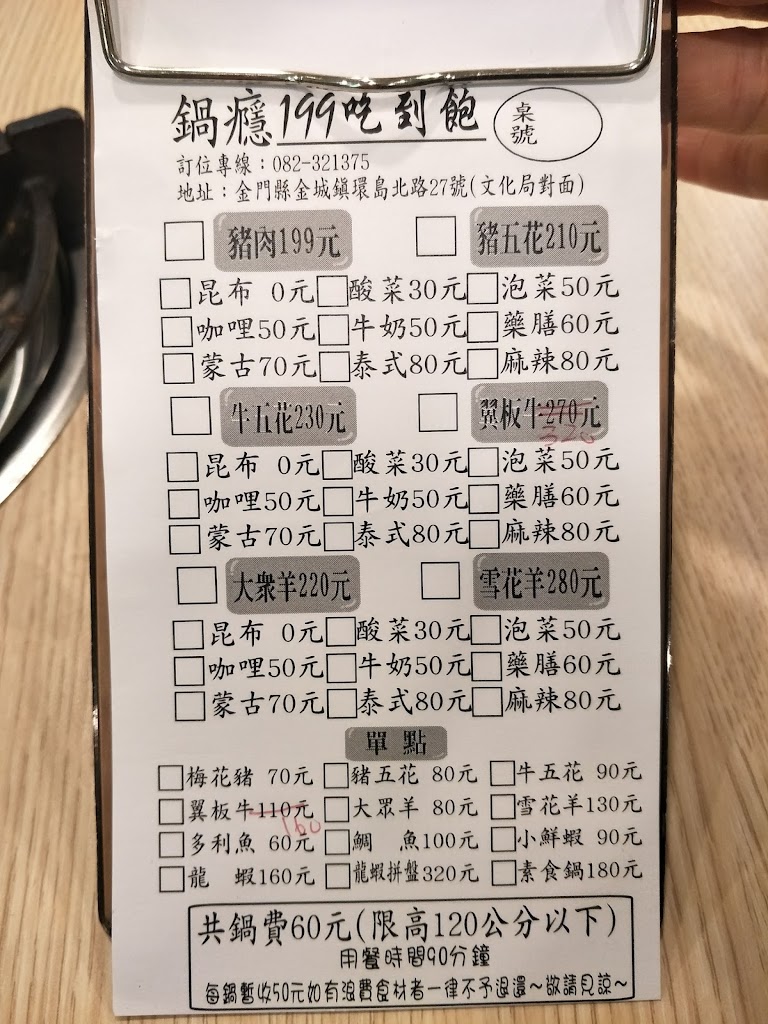 鍋癮199吃到飽 桌號
訂位專線：082-321375
地址：金門縣金城鎮環島北路27號(文化局對面)
豬肉199元 豬五花210元
昆布 0元 酸菜30元 泡菜50元
咖哩50元 牛奶50元 藥膳60元
蒙古70元 泰式80元 麻辣80元
牛五花230元 翼板牛270元
320
昆布 0元 酸菜30元 泡菜50元
咖哩50元 牛奶50元 藥膳60元
蒙古70元 泰式80元 麻辣80元
大眾羊220元 雪花羊280元
昆布 0元 酸菜30元 泡菜50元
咖哩50元 牛奶50元 藥膳60元
蒙古70元 泰式80元 麻辣80元
單點
梅花豬 70元 豬五花 80元 牛五花 90元
翼板牛110元 大眾羊 80元 雪花羊130元
160
多利魚 60元 鯛 魚100元 小鮮蝦 90元
龍 蝦160元 龍蝦拼盤320元 素食鍋180元
共鍋費60元(限高120公分以下)
用餐時間90分鐘
每鍋暫收50元如有浪費食材者一律不予退還～敬請見諒～